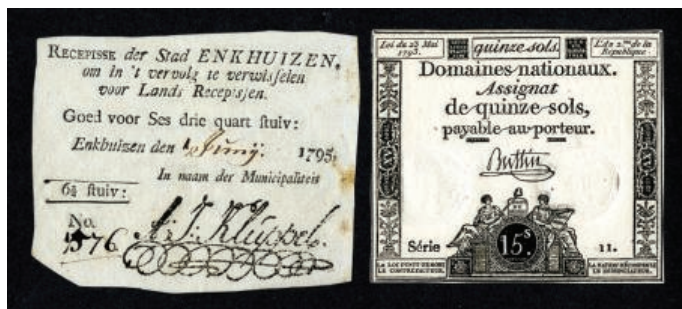 RECEPISSE der Stad ENKHUIZEN,
om in 't vervolg te verwisselen
voor Lands Recepisjen.
Goed voor Ses drie quart stuiv:
Enkhuizen den 1 Junÿ. 1795.
In naam der Municipaliteit
6¾ stuiv:
No.
A: J: Kluppel.
Loi du 23 Mai
1793.
quinze sols.
L'An 2.me de la
République.
Domaines nationaux.
Assignat
de quinze sols,
payable au porteur.
Buttin
Série 15.s 11.
LA LOI PUNIT DE MORT
LE CONTREFACTEUR.
LA NATION RÉCOMPENSE
LE DENONCIATEUR.